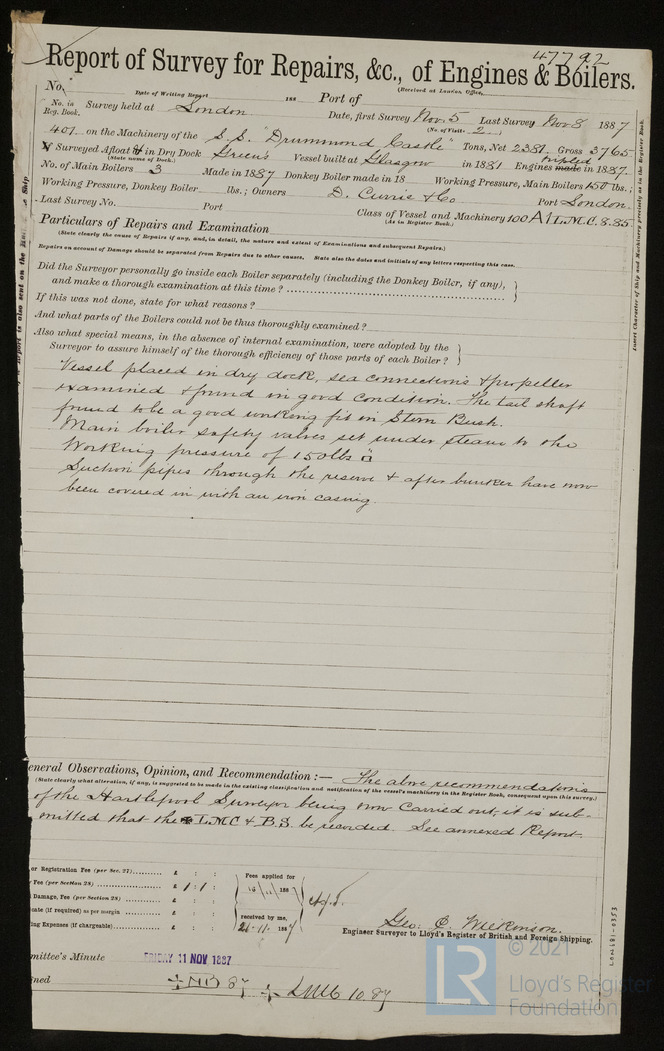 47792
Report of Survey for Repairs, &c., of Engines & Boilers.
No.
Date of Writing Report 188 Port of (Received at London Office,
No. in Reg. Book. Survey held at London Date, first Survey Nov. 5 Last Survey Nov 8 1887
(No. of Visits 2 )
407 on the Machinery of the S.S. "Drummond Castle" Tons, Net 2351. Gross 3765
If Surveyed Afloat or in Dry Dock Green's Vessel built at Glasgow in 1881 Engines made tripled in 1887.
(State name of Dock.)
No. of Main Boilers 3 Made in 1887 Donkey Boiler made in 18 Working Pressure, Main Boilers 150 lbs.;
Working Pressure, Donkey Boiler lbs.; Owners D. Currie & Co Port London.
Last Survey No. Port Class of Vessel and Machinery 100 A1 L.M.C. 8.85
(As in Register Book.)
Particulars of Repairs and Examination
(State clearly the cause of Repairs if any, and, in detail, the nature and extent of Examinations and subsequent Repairs.)
Repairs on account of Damage should be separated from Repairs due to other causes. State also the dates and initials of any letters respecting this case.
Did the Surveyor personally go inside each Boiler separately (including the Donkey Boiler, if any),
and make a thorough examination at this time ?
If this was not done, state for what reasons ?
And what parts of the Boilers could not be thus thoroughly examined ?
Also what special means, in the absence of internal examination, were adopted by the
Surveyor to assure himself of the thorough efficiency of those parts of each Boiler ?
Vessel placed in dry dock, sea connections & propeller
examined & found in good condition. The tail shaft
found to be a good working fit in Stern Bush.
Main boiler safety valves set under steam to the
Working pressure of 150 lbs □"
Suction pipes through the reserve & after bunker have now
been covered in with an iron casing.
eneral Observations, Opinion, and Recommendation :— The above recommendations
(State clearly what alteration, if any, is suggested to be made in the existing classification and notification of the vessel's machinery in the Register Book, consequent upon this survey.)
of the Hartlepool Surveyor being now carried out, it is sub-
mitted that the L.M.C & B.S. be recorded. See annexed Report.
or Registration Fee (per Sec. 27) £ : :
Fee (per Section 28) £ 1 : 1 :
Damage, Fee (per Section 28) £ : :
cate (if required) as per margin £ : :
ing Expenses (if chargeable) £ : :
Fees applied for
16/11/1887
received by me,
21.11.1887
Geo. C. Wilkinson.
Engineer Surveyor to Lloyd's Register of British and Foreign Shipping.
mmittee's Minute FRIDAY 11 NOV 1887
gned + NB 87 + LMC 10.87
Report is also sent on the
Ship
Insert Character of Ship and Machinery precisely as in the Register Book.
LON481-0353
© 2021
LR
Lloyd's Register
Foundation